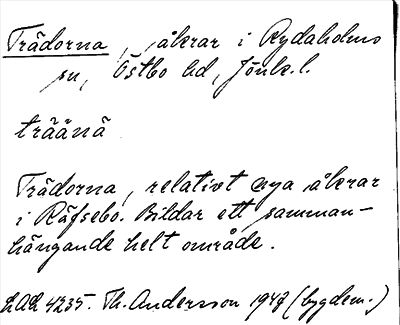 Trädorna, åkrar i Rydaholms
sn, Östbo hd, Jönk. l.
träänä
Trädorna, relativt nya åkrar
i Räfsebo. Bildar ett samman-
hängande helt område.
LAL 4235. Th. Andersson 1947 (bygdem.)